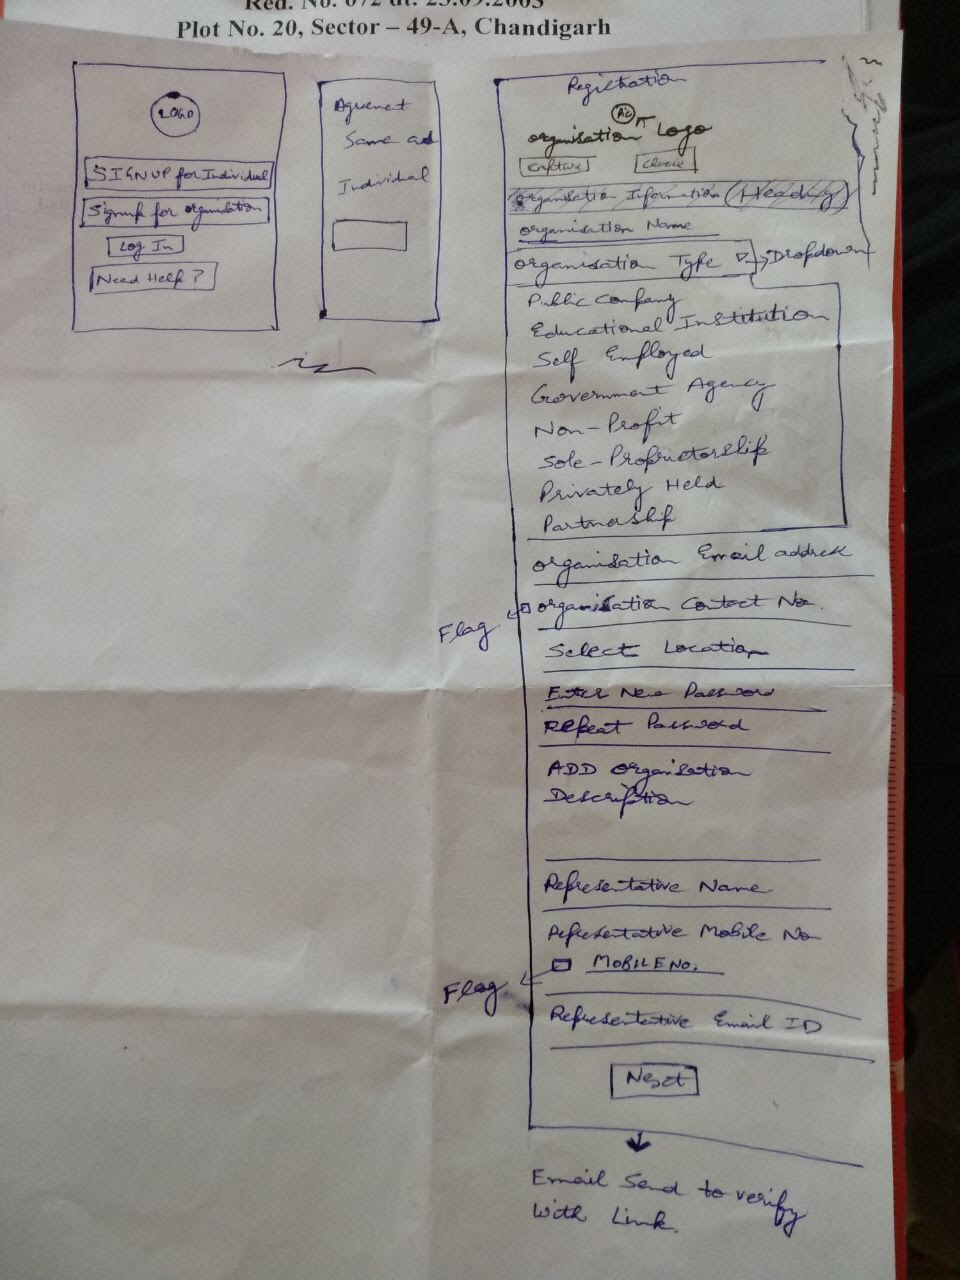 Red. No. 672 dt. 23.09.2003
Plot No. 20, Sector – 49-A, Chandigarh
LOGO
SIGNUP for Individual
Signup for organisation
Log In
Need Help?
Agreement
Same as
Individual
Registration
Pic
organisation Logo
Capture
Choose
Organisation Information (Heading)
organisation Name
organisation Type → Dropdown
Public Company
Educational Institution
Self Employed
Government Agency
Non-Profit
Sole-Proprietorship
Privately Held
Partnership
organisation Email address
organisation Contact No.
Flag
Select Location
Enter New Password
Repeat Password
ADD organisation
Description
Representative Name
Representative Mobile No
MOBILE NO.
Flag
Representative Email ID
Next
Email Send to verify
With Link.